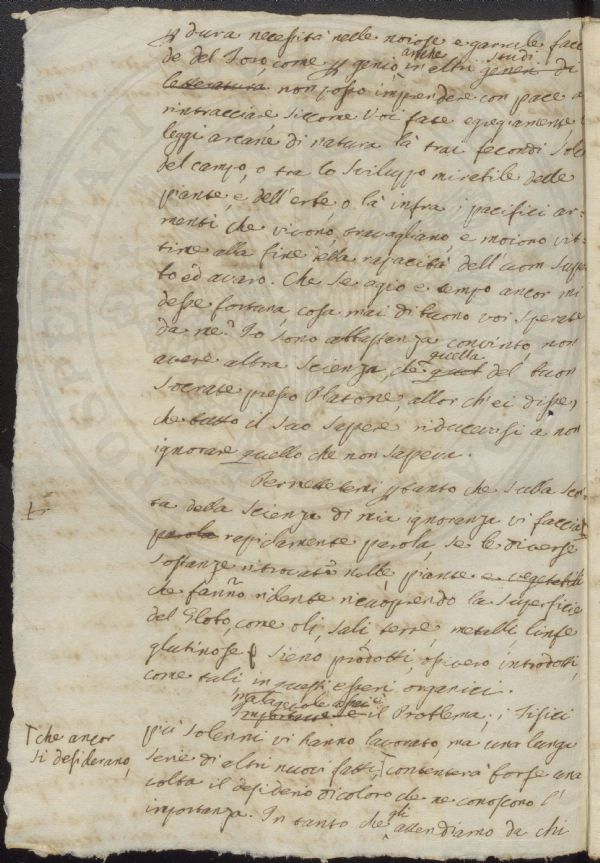 p dura necessità nelle noiose e garrule faccen
de del Foro, come p genio anche in altri studi generi di
letteratura non posso imprendere con pace a
rintracciare siccome Voi fate egregiamente, le
leggi arcane di natura là trai fecondi solc
del campo, o tra lo sviluppo mirabile delle
piante, e dell'erbe, o là infra i pacifici ar=
menti che vivono, travagliano, e moiono vit=
time alla fine della rapacità dell'uom super
bo ed avaro. Che se agio e tempo ancor mi
desse fortuna, cosa mai di buono voi sperate
da me? Io sono abbastanza convinto, non
avere altra scienza, che quella quel del buon
Socrate presso Platone, allor ch'ei disse,
che tutto il suo sapere riducevasi a non
ignorare quello che non sapeva.
Permettetemi ptanto che sulla scor
ta della scienza di mia ignoranza vi faccia
parola rapidamente parola, se le diverse
sostanze ritrovate nelle piante e vegetabili
che fanno ridente ricuoprendo la superficie
del Globo, come oli, sali, terre, metalli, linfe
glutinose sieno prodotti, ossivero introdotti,
come tali in questi esseri organici.
malagevole assai è
importante è il Problema; i Fisici
più solenni vi hanno lavorato, ma una lunga
serie di altri nuovi fatti, contenterà forse una
che ancor
si desiderano,
volta il desiderio di coloro che ne conoscono l'
importanza. In tanto che gli attendiamo da chi